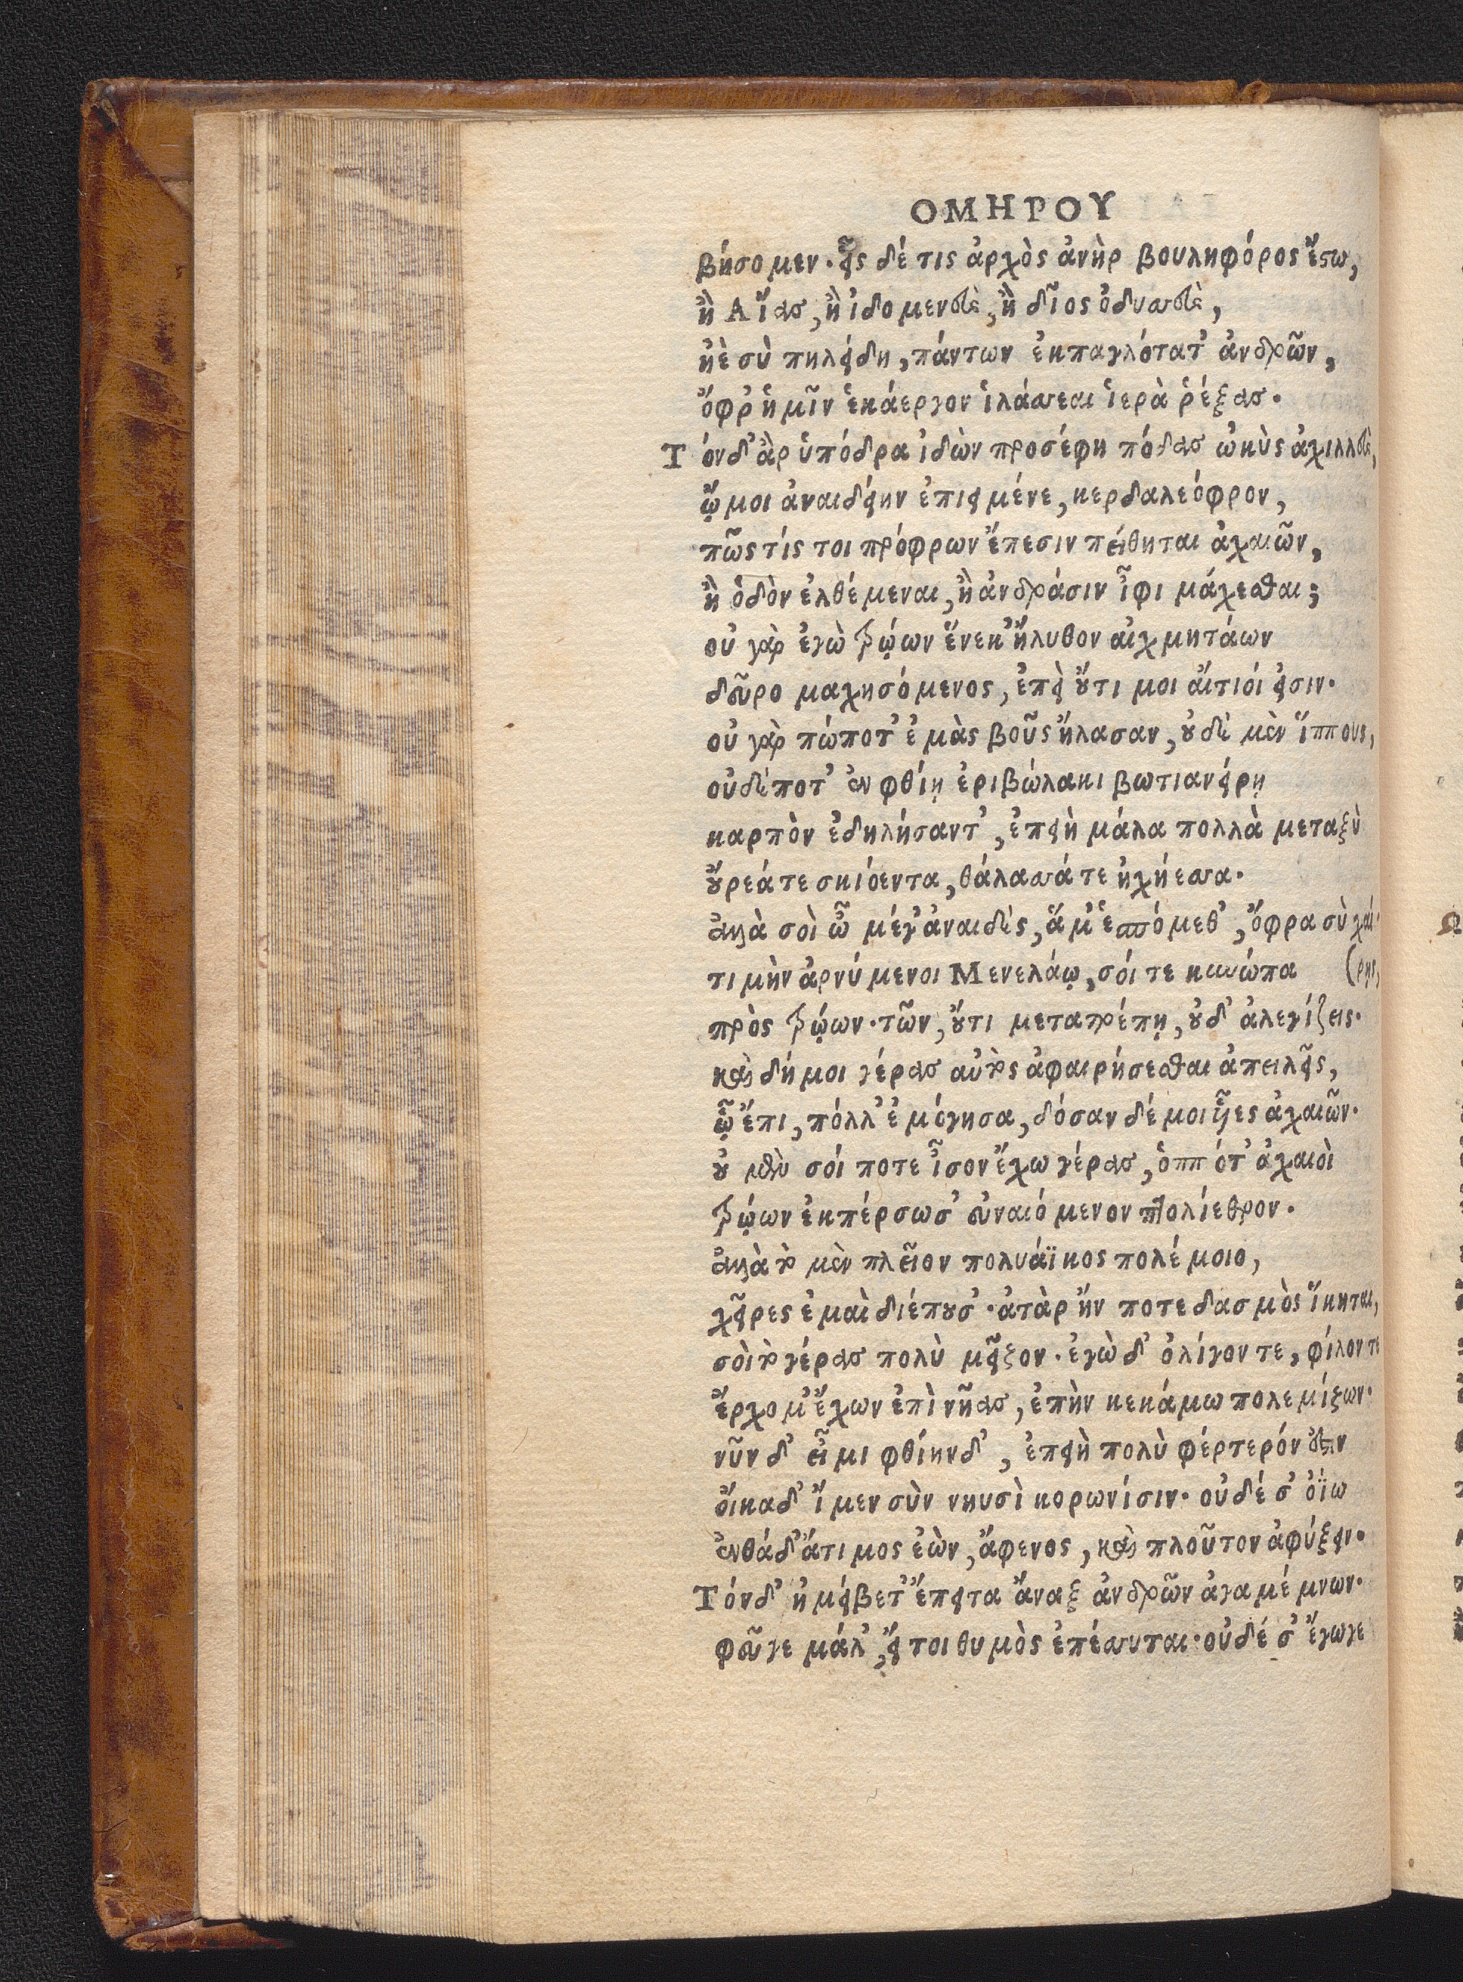 ΟΜΗΡΟΥ
βήσομεν. εἷς δέ τις ἀρχὸς ἀνὴρ βουληφόρος ἔστω,
ἢ Αἴας, ἢ ἰδομενεὺς, ἢ δῖος ὀδυσσεὺς,
ἠὲ σὺ πηλείδη, πάντων ἐκπαγλότατ' ἀνδρῶν,
ὄφρ' ἡμῖν ἑκάεργον ἱλάσσεαι ἱερὰ ῥέξας.
Τόνδ' ἂρ ὑπόδρα ἰδὼν προσέφη πόδας ὠκὺς ἀχιλλεὺς,
ᾤ μοι ἀναιδείην ἐπιειμένε, κερδαλεόφρον,
πῶς τίς τοι πρόφρων ἔπεσιν πείθηται ἀχαιῶν,
ἢ ὁδὸν ἐλθέμεναι, ἢ ἀνδράσιν ἶφι μάχεσθαι;
οὐ γὰρ ἐγὼ τρώων ἕνεκ' ἤλυθον αἰχμητάων
δεῦρο μαχησόμενος, ἐπεὶ οὔτι μοι αἴτιόι εἰσιν.
οὐ γὰρ πώποτ' ἐμὰς βοῦς ἤλασαν, οὐδὲ μὲν ἵππους,
οὐδέποτ' ἐν φθίῃ ἐριβώλακι βωτιανείρῃ
καρπὸν ἐδηλήσαντ', ἐπειὴ μάλα πολλὰ μεταξὺ
οὔρεά τε σκιόεντα, θάλασσά τε ἠχήεσσα.
ἀλλὰ σοὶ ὦ μέγ' ἀναιδὲς, ἅμ' ἑσπόμεθ', ὄφρα σὺ χαί-
τιμὴν ἀρνύμενοι Μενελάῳ, σόι τε κυνώπα (ρης,
πρὸς τρώων. τῶν, οὔτι μετατρέπῃ, οὐδ' ἀλεγίζεις.
καὶ δή μοι γέρας αὐτὸς ἀφαιρήσεσθαι ἀπειλεῖς,
ᾧ ἔπι, πόλλ' ἐμόγησα, δόσαν δέ μοι υἷες ἀχαιῶν.
οὐ μὲν σόι ποτε ἶσον ἔχω γέρας, ὁππότ' ἀχαιοὶ
τρώων ἐκπέρσωσ' εὐναιόμενον πτολίεθρον.
ἀλλὰ τὸ μὲν πλεῖον πολυάϊκος πολέμοιο,
χεῖρες ἐμαὶ διέπουσ'. ἀτὰρ ἤν ποτε δασμὸς ἵκηται,
σοὶ τὸ γέρας πολὺ μεῖζον. ἐγὼ δ' ὀλίγον τε, φίλον τε
ἔρχομ' ἔχων ἐπὶ νῆας, ἐπὴν κεκάμω πολεμίζων.
νῦν δ' εἶμι φθίηνδ', ἐπειὴ πολὺ φέρτερόν ἐστιν
οἴκαδ' ἴμεν σὺν νηυσὶ κορωνίσιν. οὐδέ σ' ὀΐω
ἐνθάδ' ἄτιμος ἐὼν, ἄφενος, καὶ πλοῦτον ἀφύξειν.
Τόνδ' ἠμείβετ' ἔπειτα ἄναξ ἀνδρῶν ἀγαμέμνων.
φεῦγε μάλ', εἴ τοι θυμὸς ἐπέσσυται. οὐδέ σ' ἔγωγε